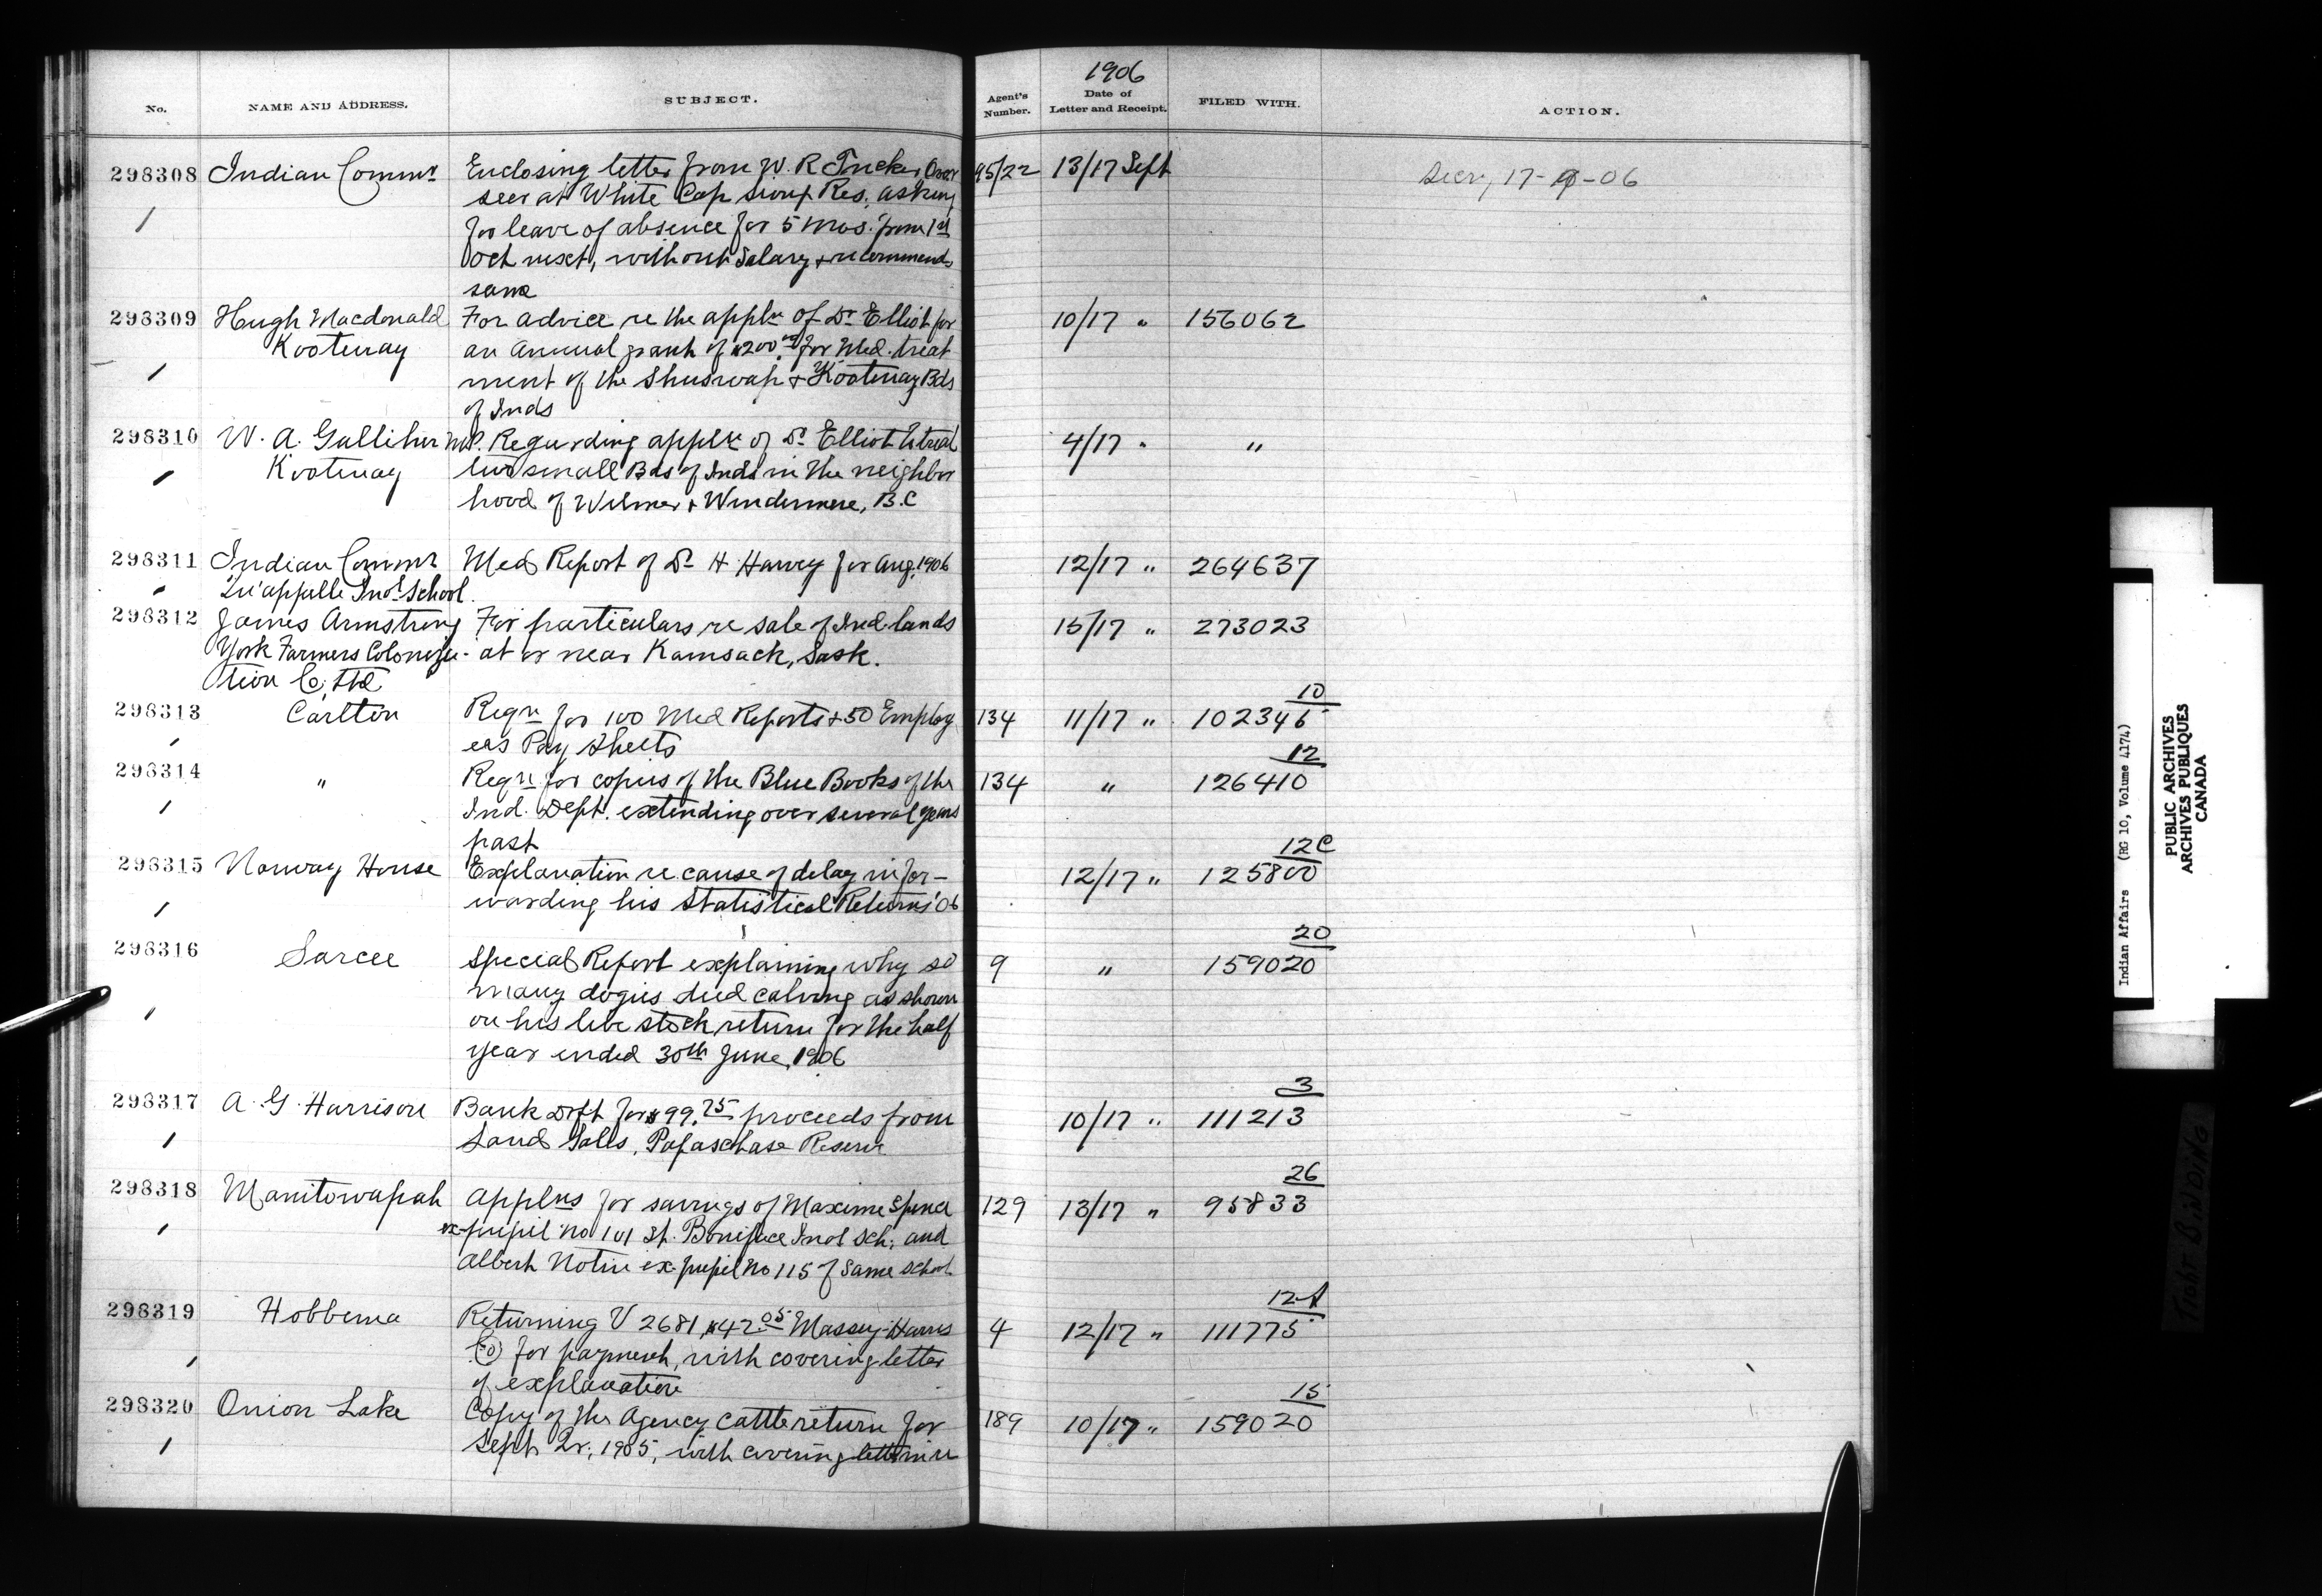 1906
No. NAME AND ADDRESS. SUBJECT. Agent's Number. Date of Letter and Receipt. FILED WITH. ACTION.
298308 Indian Commr Enclosing letter from W. R Tucker, Over 95/22 13/17 Sept Secy, 17-9-06
seer at White Cap Sioux Res. asking
for leave of absence for 5 mos. from 1st
Oct next, without Salary & recommends
same
298309 Hugh Macdonald For advice re the appln of Dr Elliot for 10/17 " 156062
Kootenay an annual grant of $200.00 for Med. treat
ment of the Shuswap & Kootenay Bds
of Inds
298310 W. A. Galliher M.P. Regarding appln of Dr Elliot to treat 4/17 " "
Kootenay two small Bds of Inds in the neighbor
hood of Wilmer & Windermere, B.C
298311 Indian Commr Med Report of Dr H Harvey for Aug. 1906 12/17 " 264637
Qu'appelle Indl School.
298312 James Armstrong For particulars re sale of Ind. lands 15/17 " 273023
York Farmers Coloniza- at or near Kamsack, Sask.
tion Co, Ltd
10
298313 Carlton Reqn for 100 Med Reports & 50 Employ 134 11/17 " 102346
ees Pay Sheets
12
298314 " Reqn for copies of the Blue Books of the 134 " 126410
Ind. Dept. extending over several years
past
12C
298315 Norway House Explanation re cause of delay in for- 12/17 " 125800
warding his Statistical Returns '06
20
298316 Sarcee Special Report explaining why so 9 " 159020
many dogies died calving as shown
on his live stock return for the half
year ended 30th June, 1906
3
298317 A. G. Harrison Bank Dft for $99.75 proceeds from 10/17 " 111213
Land Sales, Papaschase Reserve
26
298318 Manitowapah Applns for savings of Maxime Spence 129 13/17 " 95833
ex-pupil no 101 St. Boniface Indl Sch; and
Albert ex-pupil no 115 of same school
12-A
298319 Hobbema Returning V 2681, $42.05 Massey-Harris 4 12/17 " 111775
Co for payment, with covering letter
of explanation
15
298320 Onion Lake Copy of the Agency Cattle return for 189 10/17 " 159020
Sept Qr, 1905, with covering letter in re
Indian Affairs (RG 10, Volume 4174)
PUBLIC ARCHIVES
ARCHIVES PUBLIQUES
CANADA
Tight Binding